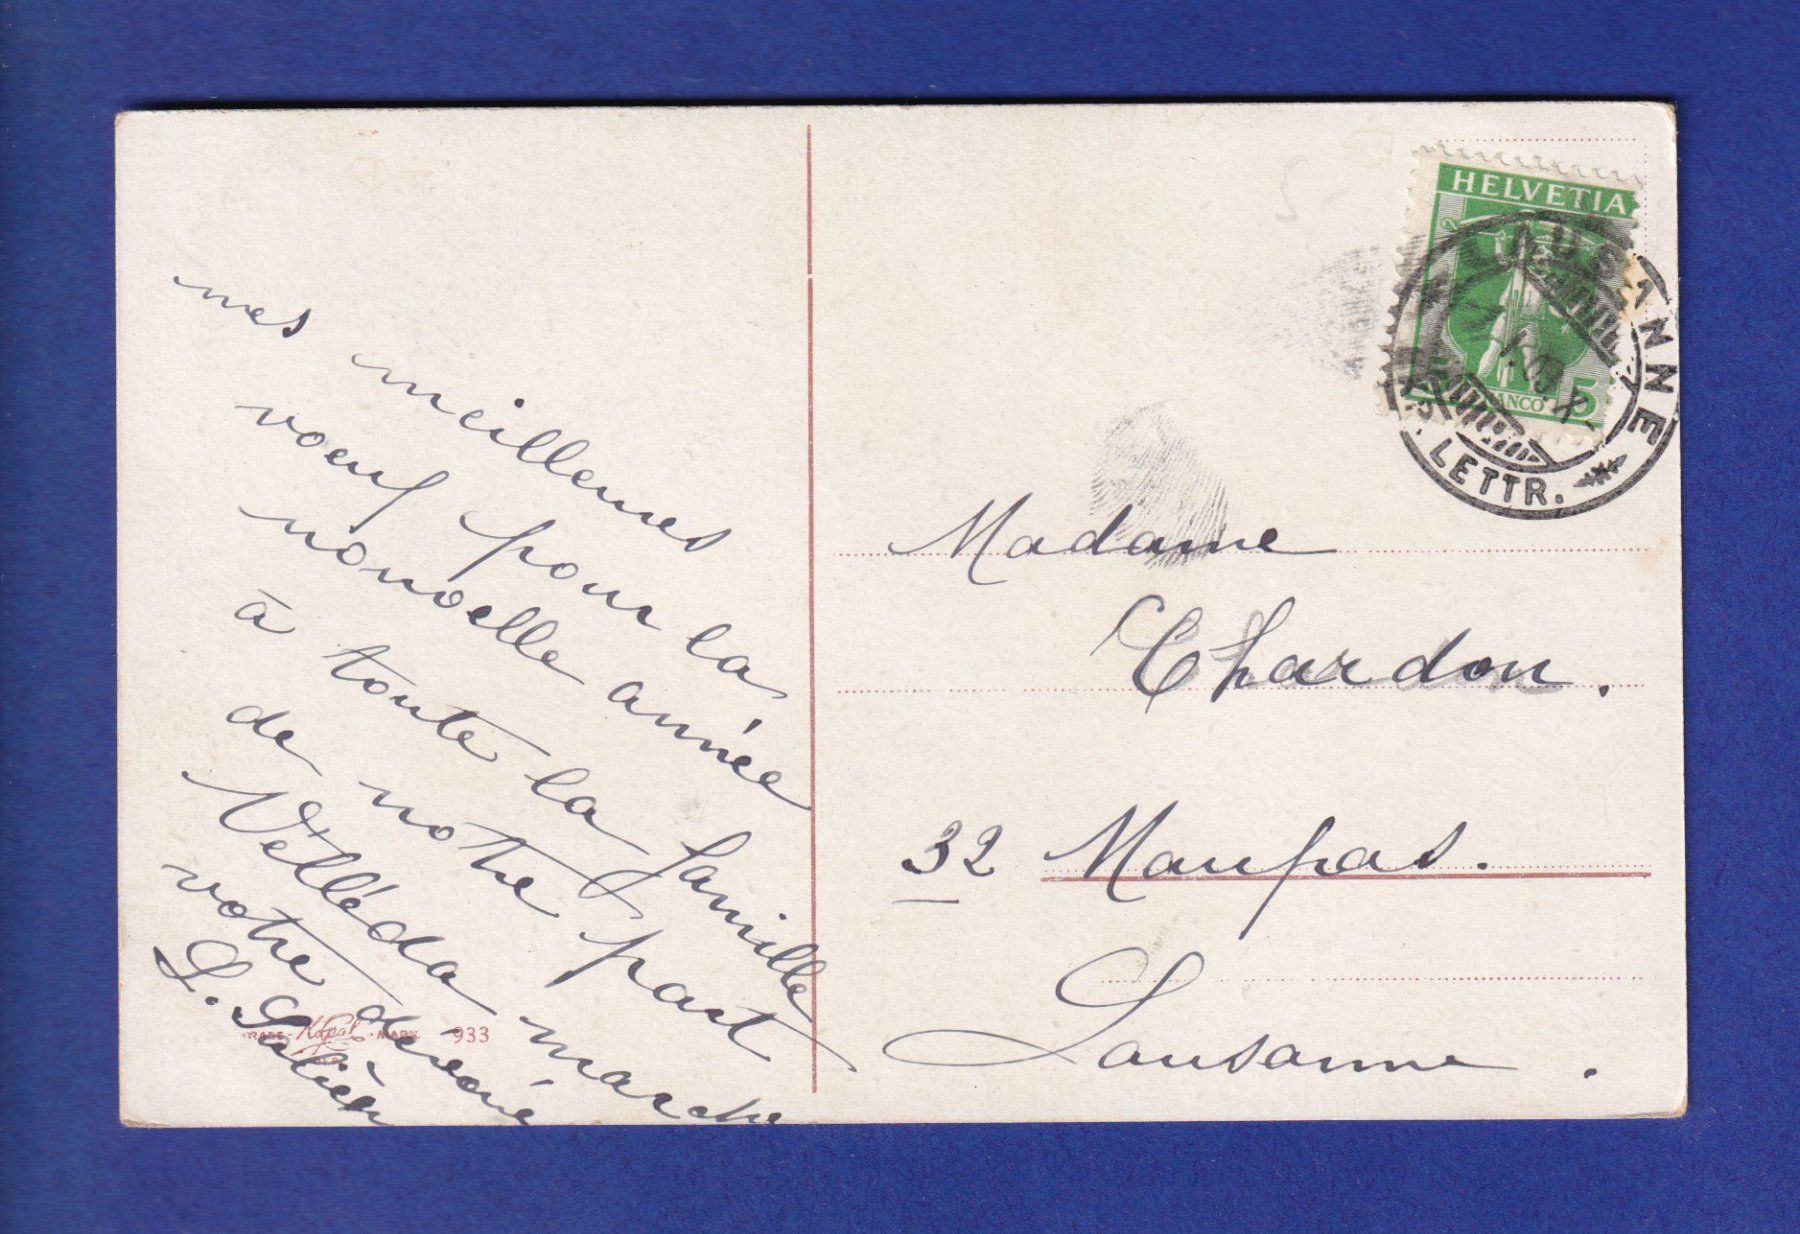 mes meilleures
voeux pour la
nouvelle année
à toute la famille
de notre part
Velléda marche
votre dévoué
L.
933
HELVETIA
LAUSANNE
LETTR.
5
Madame
Chardon.
32 Maupas.
Lausanne.